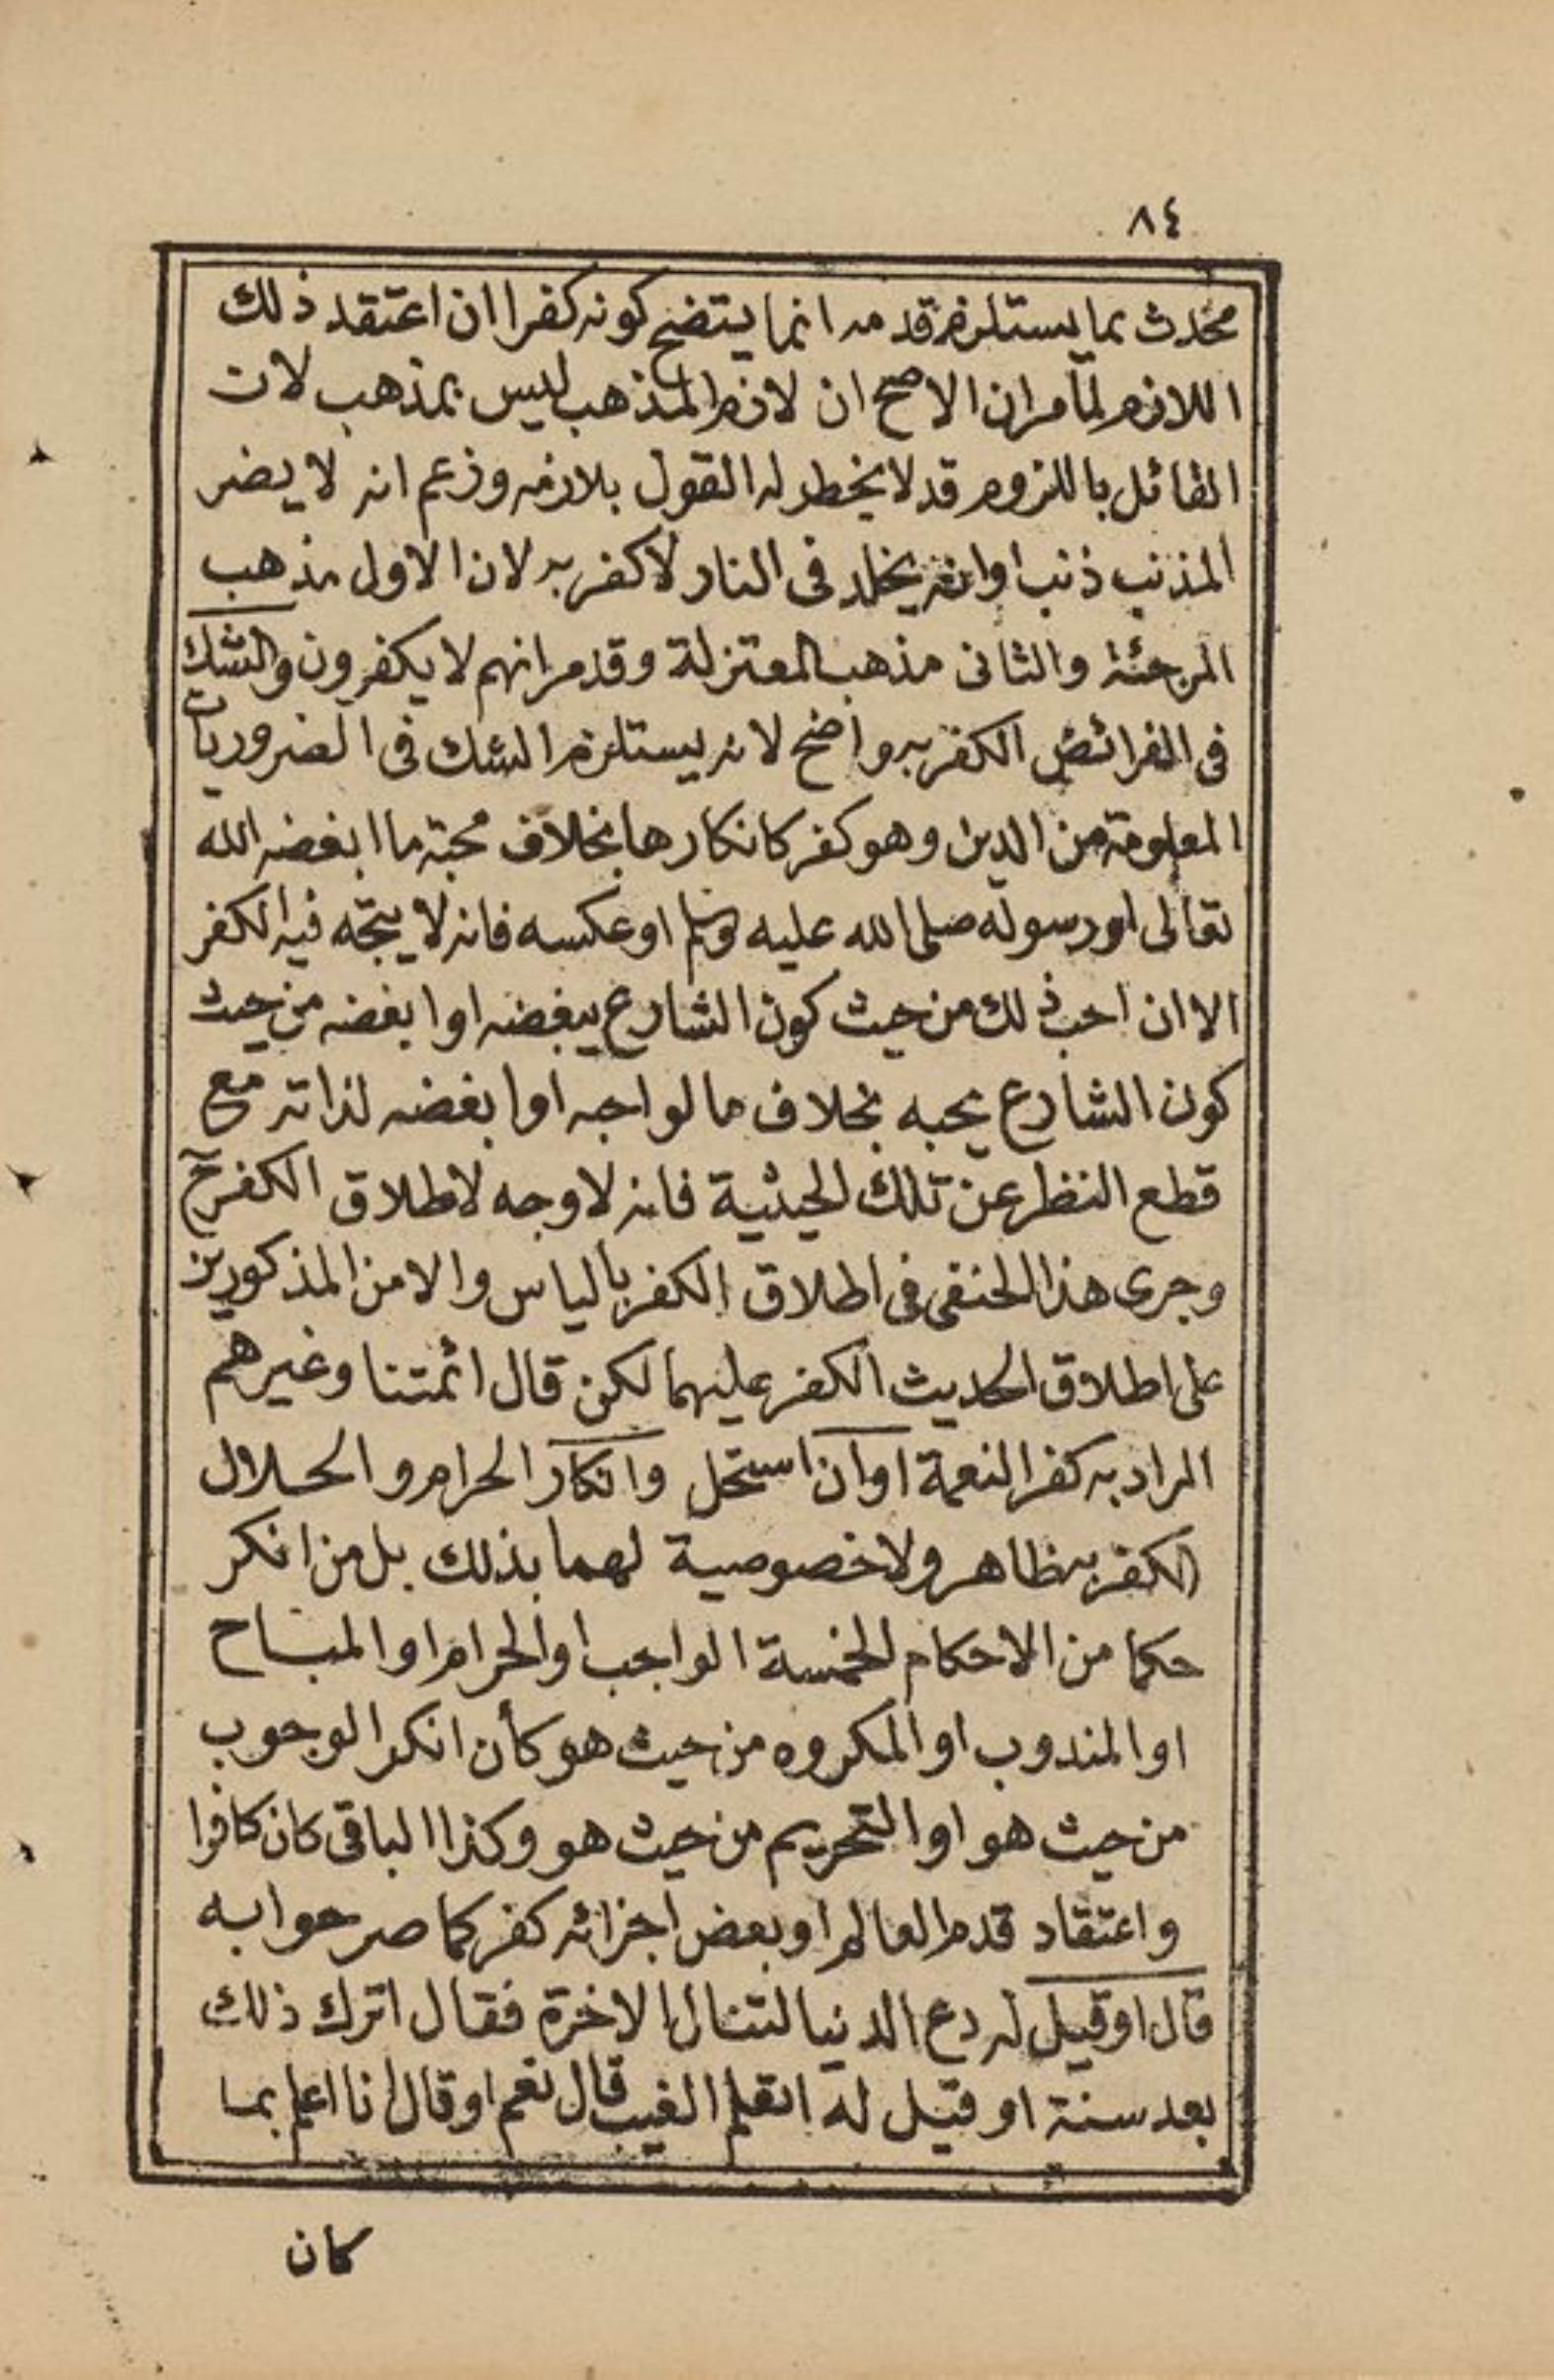 ٨٤
محدث بما يستلزم قدمه انما يتضح كونه كفرا ان اعتقد ذلك
اللازم لما مر ان الاصح ان لازم المذهب ليس بمذهب لان
القائل بالملزوم قد لا يخطر له القول بلازمه وزعم انه لا يضر
المذنب ذنب او انه يخلد فى النار لا كفر به لان الاول مذهب
المرجئة والثانى مذهب المعتزلة وقد مر انهم لا يكفرون والشك
فى الفرائض الكفر به واضح لانه يستلزم الشك فى الضروريات
المعلومة من الدين وهو كفر كانكارها بخلاف محبة ما ابغضه الله
تعالى او رسوله صلى الله عليه وسلم او عكسه فانه لا يتجه فيه الكفر
الا ان احب ذلك من حيث كون الشارع يبغضه او ابغضه من حيث
كون الشارع يحبه بخلاف ما لو احبه او ابغضه لذاته مع
قطع النظر عن تلك الحيثية فانه لا وجه لاطلاق الكفر ح
وجرى هذا الحنفى فى اطلاق الكفر بالياس والامن المذكورين
على اطلاق الحديث الكفر عليهما لكن قال ائمتنا وغيرهم
المراد به كفر النعمة او ان استحل وانكار الحرام والحلال
الكفر به ظاهر ولا خصوصية لهما بذلك بل من انكر
حكما من الاحكام الخمسة الواجب او الحرام او المباح
او المندوب او المكروه من حيث هو كأن انكر الوجوب
من حيث هو او التحريم من حيث هو وكذا الباقى كان كافرا
واعتقاد قدم العالم او بعض اجزائه كفر كما صرحوا به
قال او قيل له دع الدنيا لتنال الاخرة فقال اترك ذلك
بعد سنة او قيل له اتعلم الغيب قال نعم او قال انا اعلم بما
كان